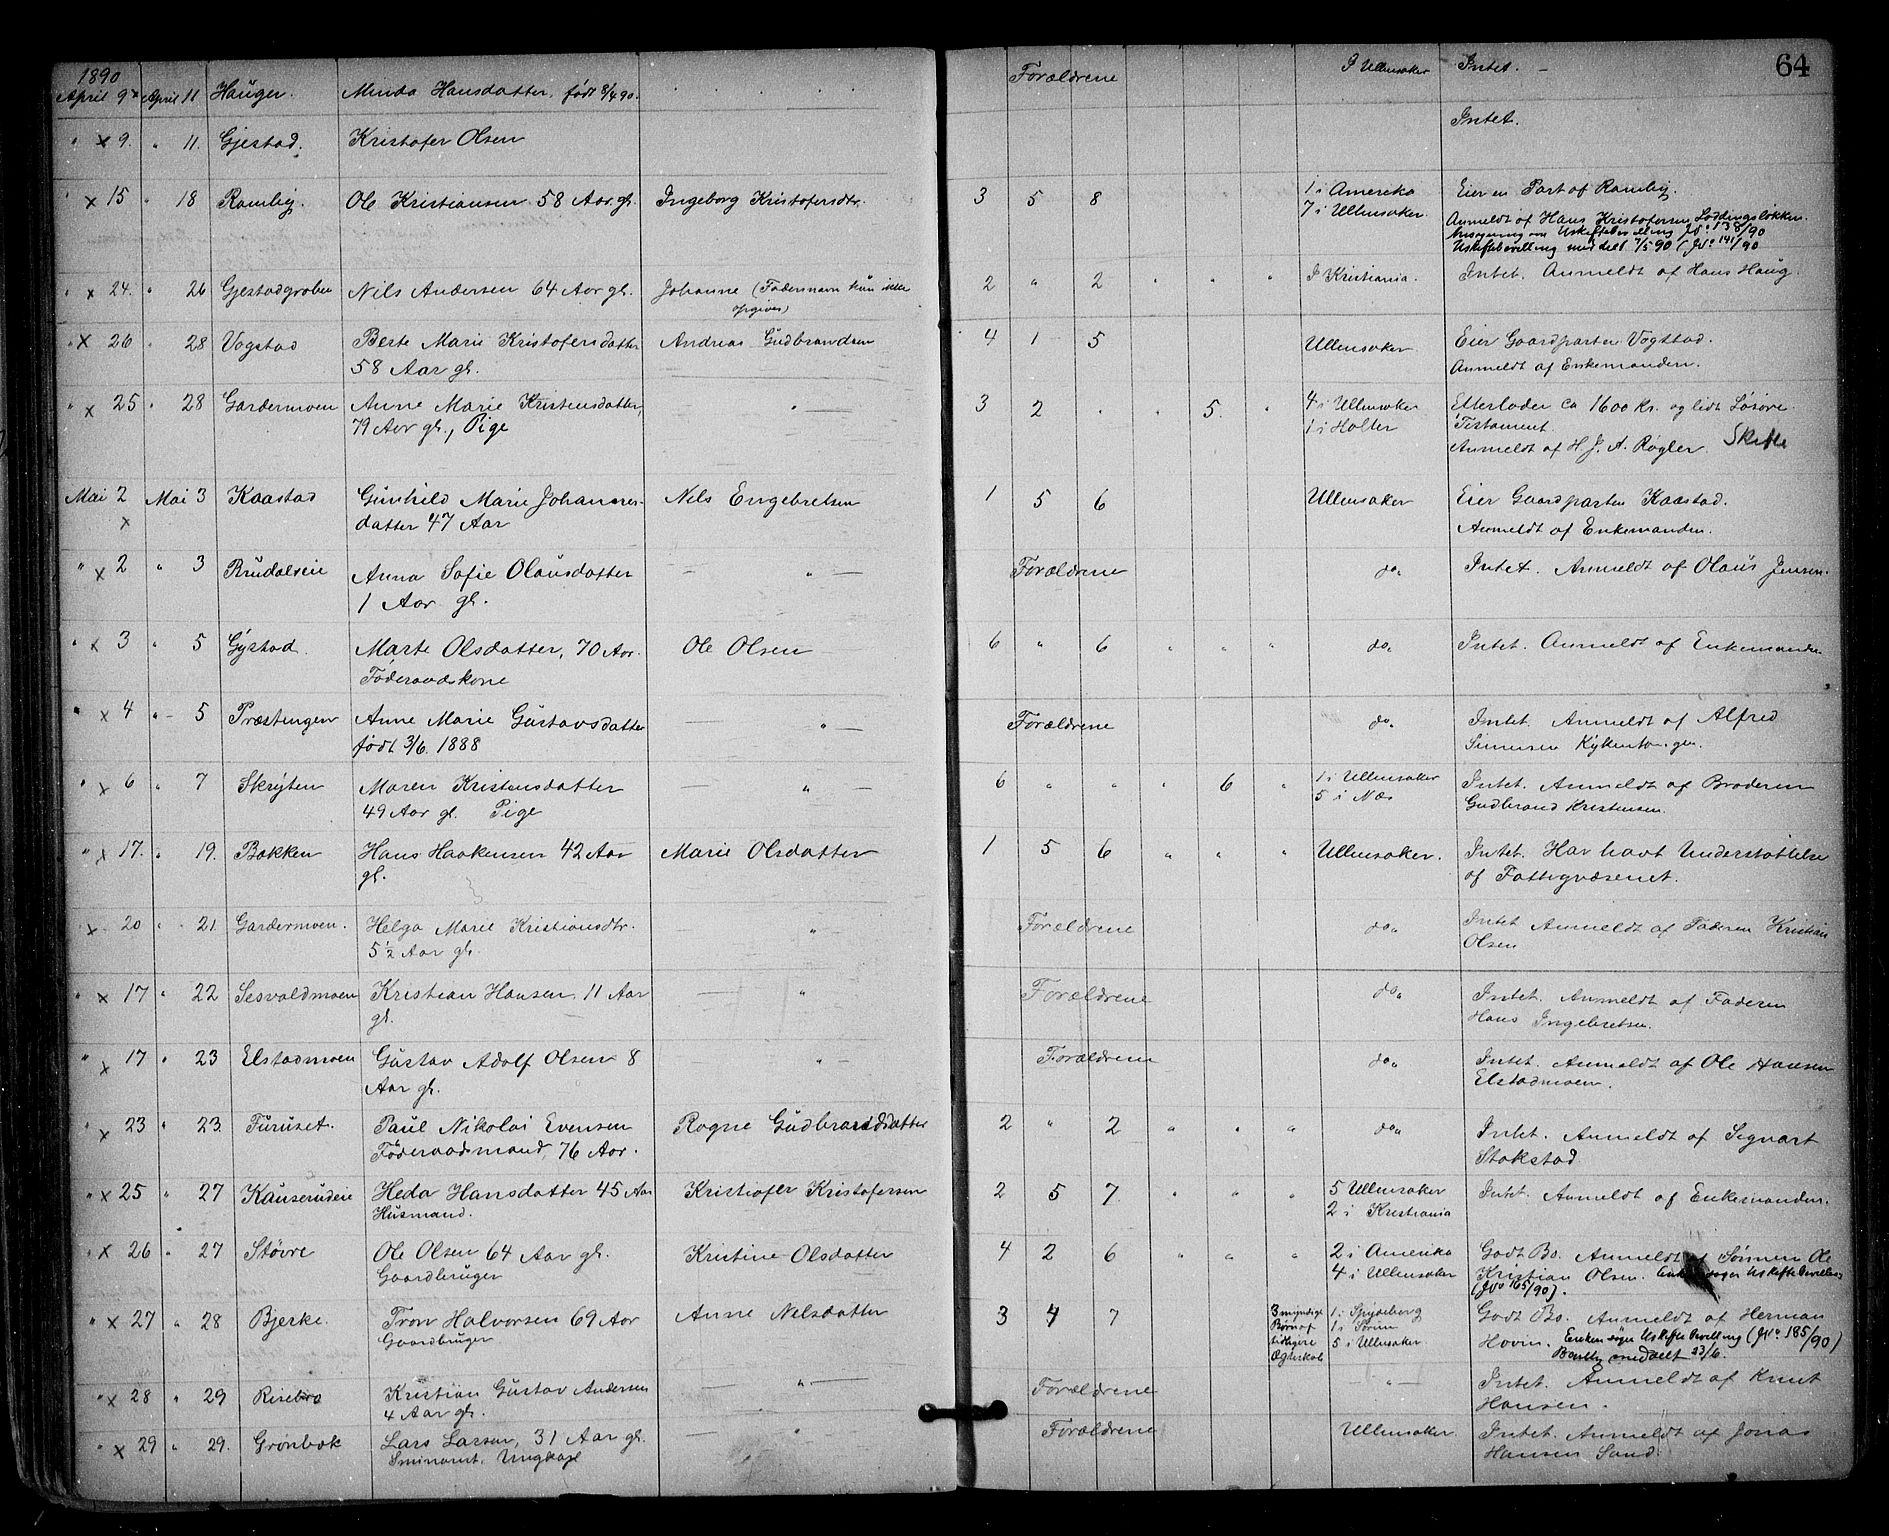 64
1890
April 9 April 11 Hauger. Minda Hansdatter, født 8/4 90. Forældrene I Ullensaker Intet. —
" x 9. " 11. Gjestad. Kristofer Olsen Intet.
" x 15 " 18 Ramby. Ole Kristiansen 58 Aar gl. Ingeborg Kristofersdtr. 3 5 8 1 i Amerika Eier en Part af Ramby.
7 i Ullensaker. Anmeldt af Hans Kristofersen Loddingsløkken.
Ansøgning om Uskiftebevilling J№ 138/90
Uskiftebevilling meddelt 7/5 90 (J№ 141/90
" x 24. " 26 Gjestadgroben Nils Andersen 64 Aar gl. Johanne (Fadernavn kun ikke 2 " 2 " " " I Kristiania. Intet. Anmeldt af Hans Haug.
opgives)
" x 26 " 28 Vogstad Berte Marie Kristofersdatter Andreas Gudbrandsen 4 1 5 Ullensaker Eier Gaardparten Vogstad.
58 Aar gl. Anmeldt af Enkemanden.
" x 25 " 28 Gardermoen Anne Marie Kristensdatter, — " — 3 2 " " 5. " 4 i Ullensaker Efterlader ca 1600 Kr. og lidt Løsøre.
79 Aar gl., Pige 1 i Holter Testament.
Anmeldt af H. J. A. Røgler. Skifte
Mai 2 Mai 3 Kaastad Gunhild Marie Johannes- Nils Engebretsen 1 5 6 Ullensaker Eier Gaardparten Kaastad.
x datter 47 Aar Anmeldt af Enkemanden.
" x 2 " 3 Brudalseie Anna Sofie Olausdatter — " — Forældrene do. Intet. Anmeldt af Olaus Jensen.
1 Aar gl.
" x 3 " 5 Gystad Marte Olsdatter, 70 Aar. Ole Olsen 6 " 6 " " " do. Intet. Anmeldt af Enkemanden
Føderaadskone
" x 4 " 5 Præstengen Anne Marie Gustavsdatter — " — Forældrene do. Intet. Anmeldt af Alfred
født 3/6. 1888 Simensen
" x 6 " 7 Skryten Maren Kristensdatter — " — 6 " " " 6 " 1 i Ullensaker Intet. Anmeldt af Broderen
49 Aar gl. Pige 5 i Næs Gudbrand Kristensen.
" x 17. " 19. Bakken Hans Haakensen 42 Aar Marie Olsdatter 1 5 6 " " " Ullensaker. Intet. Har havt Understøttelse
gl. af Fattigvæsenet.
" x 20 " 21 Gardermoen. Helga Marie Kristiansdtr. " Forældrene do. Intet Anmeldt af Faderen Kristian
5 1/2 Aar gl. Olsen
" x 17 " 22 Sesvoldmoen Kristian Hansen, 11 Aar — " Forældrene do. Intet. Anmeldt af Faderen
gl. Hans Ingebretsen.
" x 17 " 23 Elstadmoen Gustav Adolf Olsen 8 " — Forældrene do. Intet. Anmeldt af Ole Hansen
Aar gl. Elstadmoen.
x 23 " 23. Furuset. Paul Nikolai Evensen Ragne Gudbrandsdatter 2 " 2 " " " do. Intet. Anmeldt af Segvart
Føderaadsmand, 76 Aar. Stokstad
" x 25 " 27 Kauserudeie Heda Hansdatter 45 Aar Kristiofer Kristofersen 2 5 7 " " " 5 Ullensaker Intet. Anmeldt af Enkemanden.
Husmand. 2 i Kristiania
" x 26 " 27 Støvre Ole Olsen 64 Aar gl. Kristine Olsdatter 4 2 6 " " " 2 i Amerika Godt Bo. Anmeldt af Sønnen Ole
Gaardbruger 4 i Ullensaker Kristian Olsen. Enken søger Uskiftebevilling
(J№ 165/90).
" x 27 " 28 Bjerke. Tron Halvorsen 69 Aar Anne Nilsdatter 3 4 7 3 myndige 1 i Spydeberg Godt Bo. Anmeldt af Herman
Gaardbruger Børn af 1 i Sørum Hovin. Enken søger Uskiftebevilling (J№ 185/90)
tidligere 5 i Ullensaker Bevilling meddelt 23/6.
Ægteskab
" x 28 " 29 Risebro Kristian Gustav Andersen — " — Forældrene — " — Intet. Anmeldt af Knut
4 Aar gl. Hansen.
" x 29 " 29. Grønbæk Lars Larsen, 31 Aar gl. " Forældrene Ullensaker. Intet. Anmeldt af Jonas
Seminarist. Ungkarl Hansen Sand.